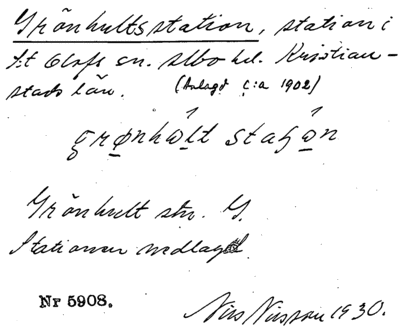 Grönhultsstation, station i
S:t Olofs sn. Albo hd. Kristian-
stads län. (Anlagd c:a 1902)
grønhult staʃon
Grönhult stn. G.
Stationen nedlagd.
Nr 5908.
Nils Nilsson 1930.